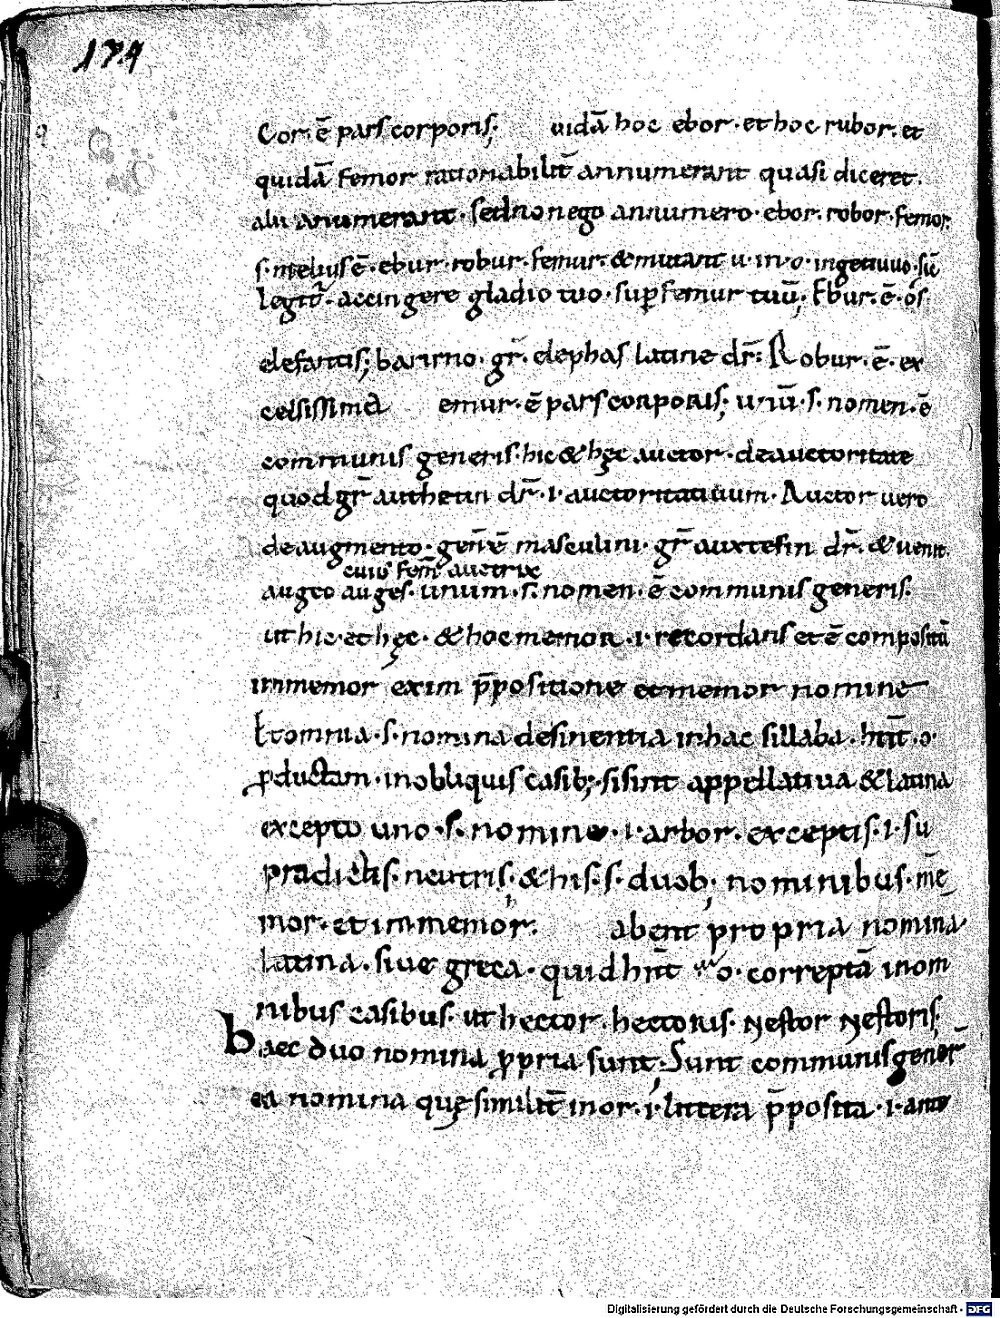 174
Cor ē pars corporis; uidā hoc ebor · et hoc rubor · et
quidā femor rationabilit̄ annumerant quasi diceret.
alii annumerant · sed non ego annumero · ebor · robor · femor.
s· melius ē · ebur · robur · femur · & mutant u · in · o · ingenitiuo · sic̄
accingere gladio tuo · sup femur tuū; Ebur · ē · os
elefantis; barrino · gr̄ · elephas latine dr̄: Robur · ē · ex
emur · ē pars corporis; unū · s · nomen · ē
communis generis · hic & hęc auctor · de auctoritate
quod gr̄ authetin dr̄ · i · auctoritatiuum · Auctor uero
de augmento · masculini · gr̄ auxtesin dr̄ · & uenit
cuiꝰ fem̄ auctrix
augeo auges · unum · s · nomen · ē communis generis ·
ut hic · et hęc · & hoc memor · i · recordans et ē compositū
immemor ex im p̄positione et memor nomine
Et omnia · s · nomina desinentia in hac sillaba · hn̄t · o ·
ꝓductam · in obliquis casib; · si sint appellatiua & latina
excepto uno · s · nomine · i · arbor · exceptis · i · su
pradictis · neutris · & his · s · duob; nominibus · me
mor · et immemor. abent propria nomina
h
latina · siue greca · quid hn̄t o · correptā in om
nibus casibus · ut hector · hectoris · Nestor Nestoris;
haec duo nomina ꝓpria sunt; Sunt communis gener
nomina quę similit̄ in or · i · littera p̄posita · i · ante
Digitalisierung gefördert durch die Deutsche Forschungsgemeinschaft - DFG